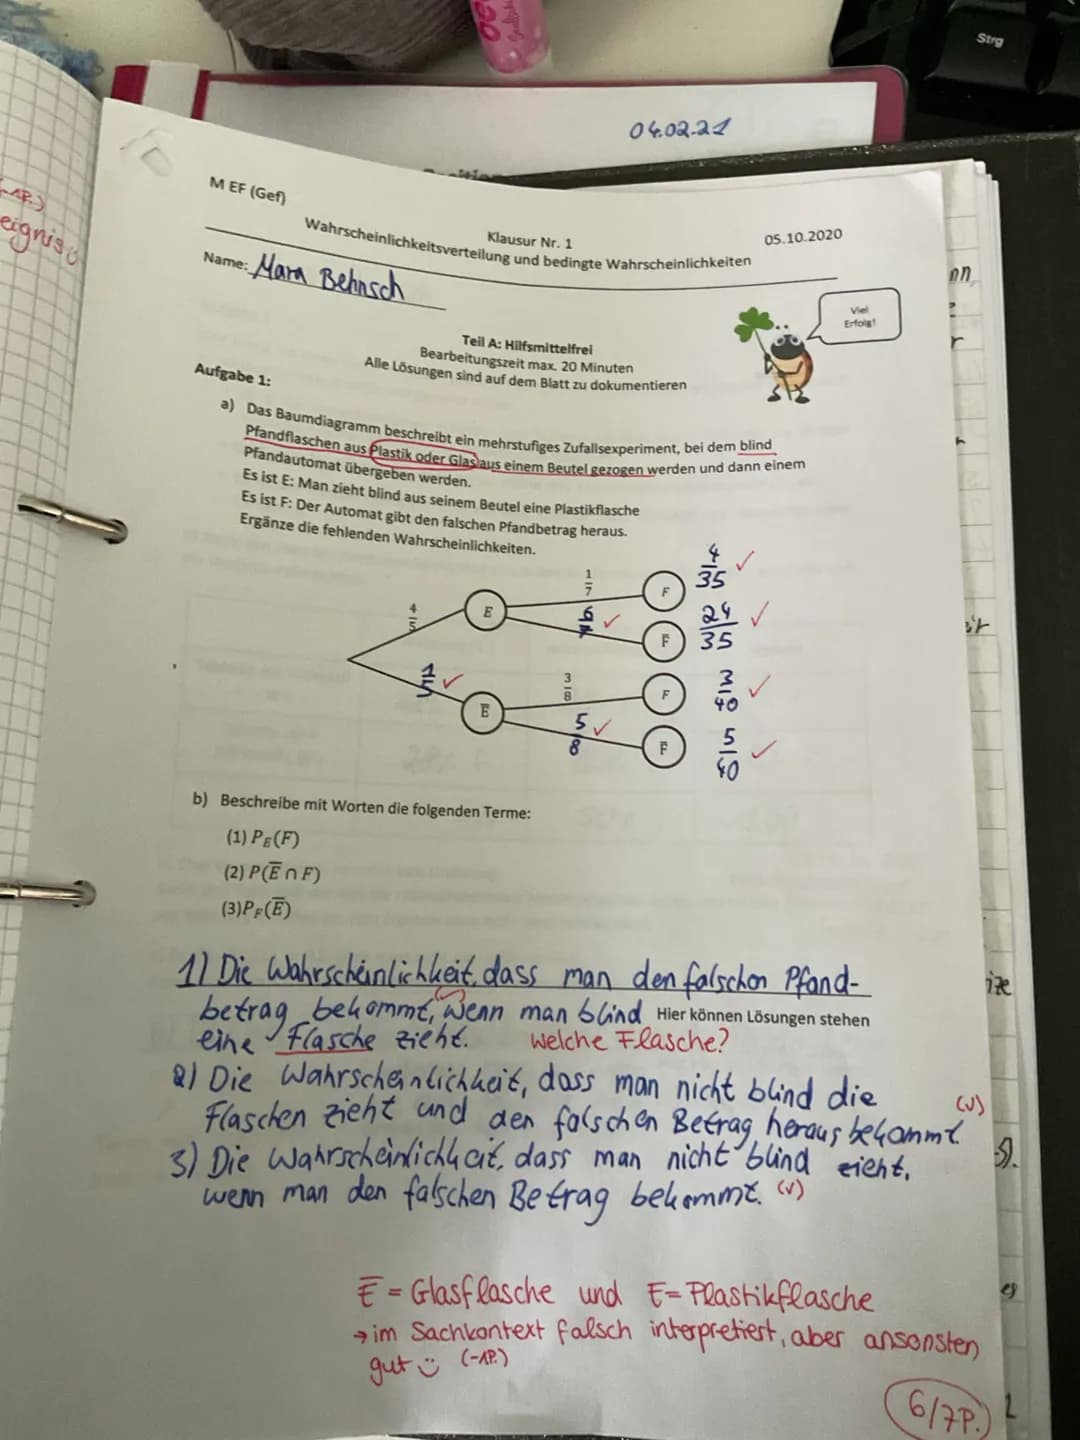 Strg
04.02.21
M EF (Gef)
Klausur Nr. 1
05.10.2020
Wahrscheinlichkeitsverteilung und bedingte Wahrscheinlichkeiten
Name: Mara Behnsch
Viel
Erfolg!
Teil A: Hilfsmittelfrei
Bearbeitungszeit max. 20 Minuten
Alle Lösungen sind auf dem Blatt zu dokumentieren
Aufgabe 1:
a) Das Baumdiagramm beschreibt ein mehrstufiges Zufallsexperiment, bei dem blind
Pfandflaschen aus Plastik oder Glas aus einem Beutel gezogen werden und dann einem
Pfandautomat übergeben werden.
Es ist E: Man zieht blind aus seinem Beutel eine Plastikflasche
Es ist F: Der Automat gibt den falschen Pfandbetrag heraus.
Ergänze die fehlenden Wahrscheinlichkeiten.
4/5 E 1/7 F 4/35 ✓
6/7 ✓ F̅ 24/35 ✓
1/5 ✓ E̅ 3/8 F 3/40 ✓
5/8 ✓ F̅ 5/40 ✓
b) Beschreibe mit Worten die folgenden Terme:
(1) P_E(F)
(2) P(E̅ ∩ F)
(3) P_F(E̅)
1) Die Wahrscheinlichkeit, dass man den falschen Pfand-
betrag bekommt, wenn man blind
Hier können Lösungen stehen
eine Flasche zieht. welche Flasche?
2) Die Wahrscheinlichkeit, dass man nicht blind die
Flaschen zieht und den falschen Betrag heraus bekommt. (✓)
3) Die Wahrscheinlichkeit, dass man nicht blind zieht,
wenn man den falschen Betrag bekommt. (✓)
E̅ = Glasflasche und E = Plastikflasche
→ im Sachkontext falsch interpretiert, aber ansonsten
gut (-1P.)
6/7P.